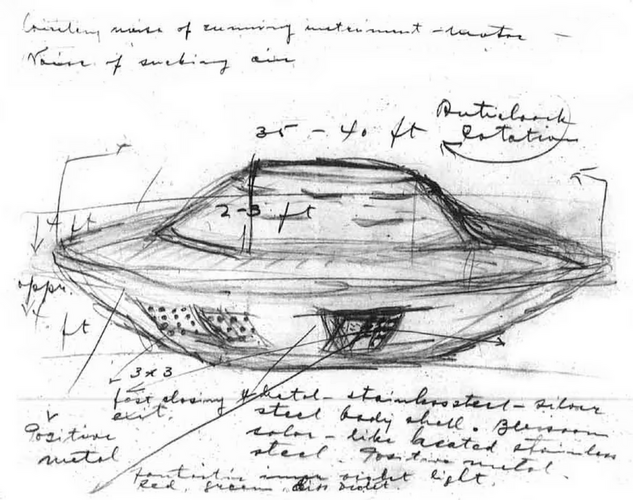 noise of running instrument - motor -
Noise of sucking air
35 - 40 ft
Anticlock
Rotation
2-3 ft
4 ft
appx.
4 ft
3 x 3
fast closing
exit.
Positive
metal
Metal - stainless steel - silver
steel body shell.
color - like heated stainless
steel. Positive metal.
Fantastic light.
Red, green,